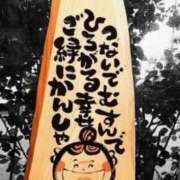 つないでむすんで
ひろがる幸せ
ご縁にかんしゃ